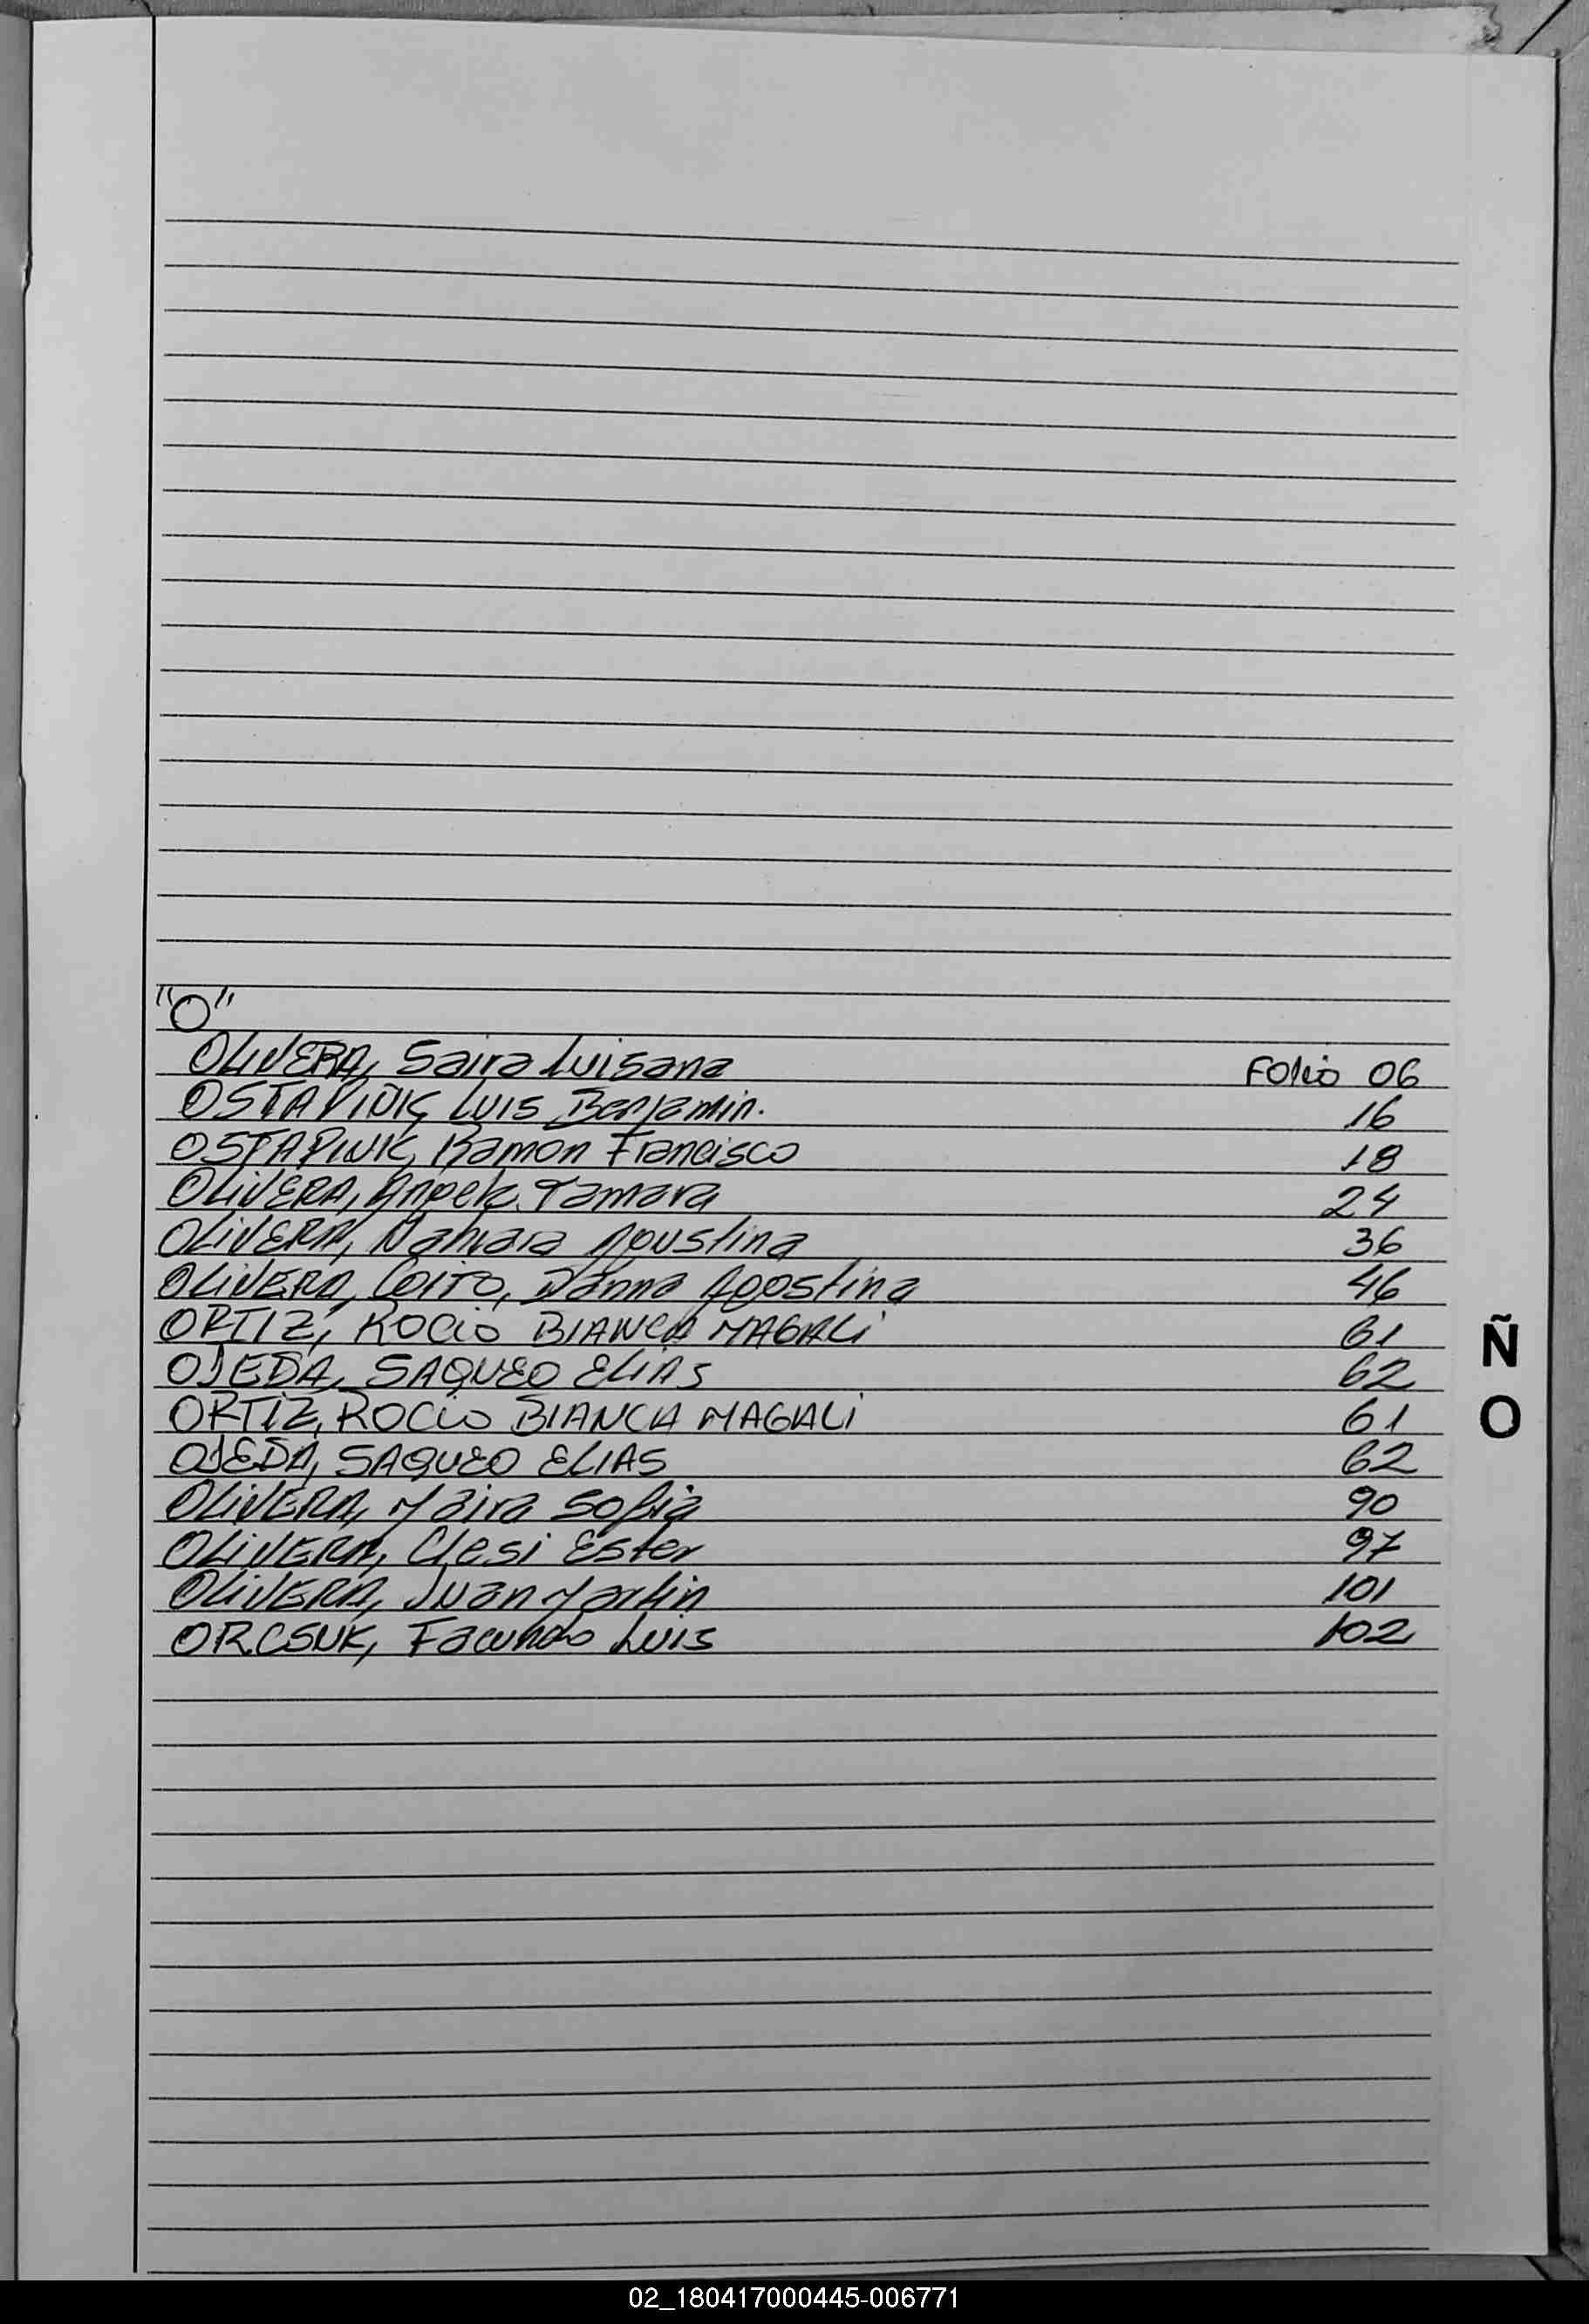 "O"
OLIVERA, Saira Luisana Folio 06
OSTAPIUK, Luis Benjamin. 16
OSTAPIUK, Ramon Francisco 18
OLIVERA, Angela Tamara 24
OLIVERA, Nahiara Agustina 36
OLIVERA, Coito, Danna Agostina 46
ORTIZ, ROCIO BIANCA MAGALI 61
OJEDA, SAQUEO ELIAS 62
ORTIZ, ROCIO BIANCA MAGALI 61
OJEDA, SAQUEO ELIAS 62
OLIVERA, Maira Sofia 90
OLIVERA, Clesi Ester 97
OLIVERA, Juan Martin 101
ORCSUK, Facundo Luis 102
Ñ
O
02_180417000445-006771